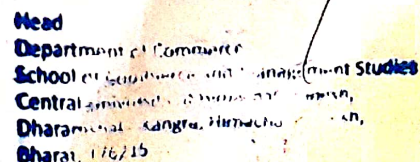 Head
Department of Commerce
School of Commerce and Management Studies
Central
Dharamshala, Kangra, Himachal
Bharat, 176215